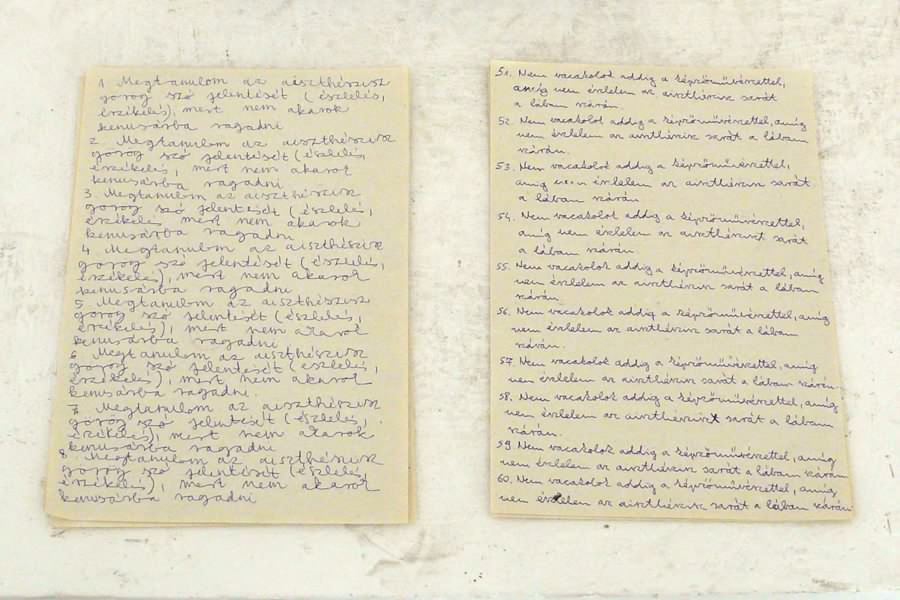 1. Megtanulom az aiszthészisz
görög szó jelentését (észlelés,
érzékelés), mert nem akarok
kenusárba ragadni
2. Megtanulom az aiszthészisz
görög szó jelentését (észlelés,
érzékelés, mert nem akarok
kenusárba ragadni
3. Megtanulom az aiszthészisz
görög szó jelentését (észlelés,
érzékelés mert nem akarok
kenusárba ragadni
4. Megtanulom az aiszthészisz
görög szó jelentését (észlelés,
érzékelés), mert nem akarok
kenusárba ragadni
5. Megtanulom az aiszthészisz
görög szó jelentését (észlelés,
érzékelés), mert nem akarok
kenusárba ragadni
6. Megtanulom az aiszthészisz
görög szó jelentését (észlelés,
érzékelés), mert nem akarok
kenusárba ragadni.
7. Megtanulom az aiszthészisz
görög szó jelentését (észlelés,
érzékelés), mert nem akarok
kenusárba ragadni
8. Megtanulom az aiszthészisz
görög szó jelentését (észlelés,
érzékelés), mert nem akarok
kenusárba ragadni
51. Nem vacakolok addig a képzőművészettel,
amíg nem érzlelem az aiszthézisz sarát
a lábam szárán.
52. Nem vacakolok addig a képzőművészettel, amíg
nem érzlelem az aiszthézisz sarát a lábam
szárán.
53. Nem vacakolok addig a képzőművészettel,
amíg nem érzlelem az aiszthézisz sarát
a lábam szárán
54. Nem vacakolok addig a képzőművészettel,
amíg nem érzlelem az aiszthézisz sarát
a lábam szárán.
55. Nem vacakolok addig a képzőművészettel, amíg
nem érzlelem az aiszthézisz sarát a lábam
szárán.
56. Nem vacakolok addig a képzőművészettel, amíg
nem érzlelem az aiszthézisz sarát a lábam
szárán.
57. Nem vacakolok addig a képzőművészettel, amíg
nem érzlelem az aiszthézisz sarát a lábam szárán.
58. Nem vacakolok addig a képzőművészettel, amíg
nem érzlelem az aiszthézisz sarát a lábam
szárán.
59. Nem vacakolok addig a képzőművészettel, amíg
nem érzlelem az aiszthézisz sarát a lábam szárán
60. Nem vacakolok addig a képzőművészettel, amíg
nem érzlelem az aiszthézisz sarát a lábam szárán